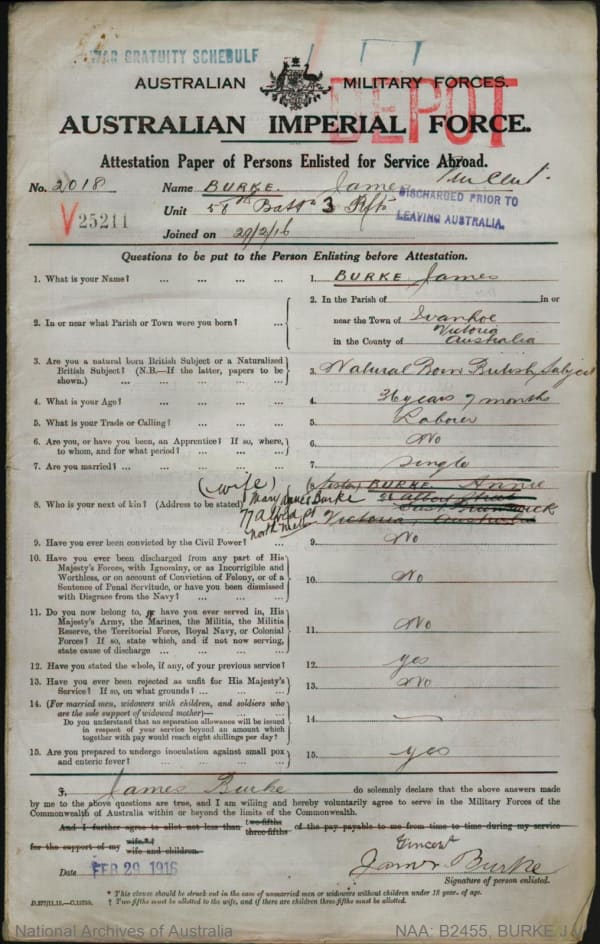 WAR GRATUITY SCHEDULE
AUSTRALIAN MILITARY FORCES.
DEPOT
AUSTRALIAN IMPERIAL FORCE.
Attestation Paper of Persons Enlisted for Service Abroad.
No. 2018 Name BURKE. James Vincent.
V 25211
Unit 58th Battn 3 Rfts
DISCHARGED PRIOR TO
LEAVING AUSTRALIA.
Joined on 29/2/16
Questions to be put to the Person Enlisting before Attestation.
1. What is your Name? ... ... ... ... 1. BURKE James
2. In or near what Parish or Town were you born? ... 2. In the Parish of in or
near the Town of Ivanhoe
Victoria
in the County of Australia
3. Are you a natural born British Subject or a Naturalized
British Subject? (N.B.—If the latter, papers to be
shown.) ... ... ... ... ... 3. Natural Born British Subject
4. What is your Age? ... ... ... ... 4. 36 years 7 months
5. What is your Trade or Calling? ... ... ... 5. Labourer
6. Are you, or have you been, an Apprentice? If so, where,
to whom, and for what period? ... ... ... 6. No
7. Are you married? ... ... ... ... ... 7. Single
8. Who is your next of kin? (Address to be stated) 8. (Sister) BURKE Annie
East Brunswick
Victoria, Australia
(wife)
Mary Burke
77
North Melb
9. Have you ever been convicted by the Civil Power? ... 9. No
10. Have you ever been discharged from any part of His
Majesty's Forces, with Ignominy, or as Incorrigible and
Worthless, or on account of Conviction of Felony, or of a
Sentence of Penal Servitude, or have you been dismissed
with Disgrace from the Navy? ... ... ... 10. No
11. Do you now belong to, or have you ever served in, His
Majesty's Army, the Marines, the Militia, the Militia
Reserve, the Territorial Force, Royal Navy, or Colonial
Forces? If so, state which, and if not now serving,
state cause of discharge ... ... ... ... 11. No
12. Have you stated the whole, if any, of your previous service? 12. yes
13. Have you ever been rejected as unfit for His Majesty's
Service? If so, on what grounds? ... ... ... 13. No
14. (For married men, widowers with children, and soldiers who
are the sole support of widowed mother)—
Do you understand that no separation allowance will be issued
in respect of your service beyond an amount which
together with pay would reach eight shillings per day? 14. —
15. Are you prepared to undergo inoculation against small pox
and enteric fever? ... ... ... ... 15. yes
I, James Burke do solemnly declare that the above answers made
by me to the above questions are true, and I am willing and hereby voluntarily agree to serve in the Military Forces of the
Commonwealth of Australia within or beyond the limits of the Commonwealth.
And I further agree to allot not less than two-fifths three-fifths of the pay payable to me from time to time during my service
for the support of my wife.*† wife and children.
Vincent
Date FEB 29 1916 James Burke
Signature of person enlisted.
* This clause should be struck out in the case of unmarried men or widowers without children under 18 years of age.
D.277/11.15.—C.15755. † Two-fifths must be allotted to the wife, and if there are children three-fifths must be allotted.
National Archives of Australia NAA: B2455, BURKE J V